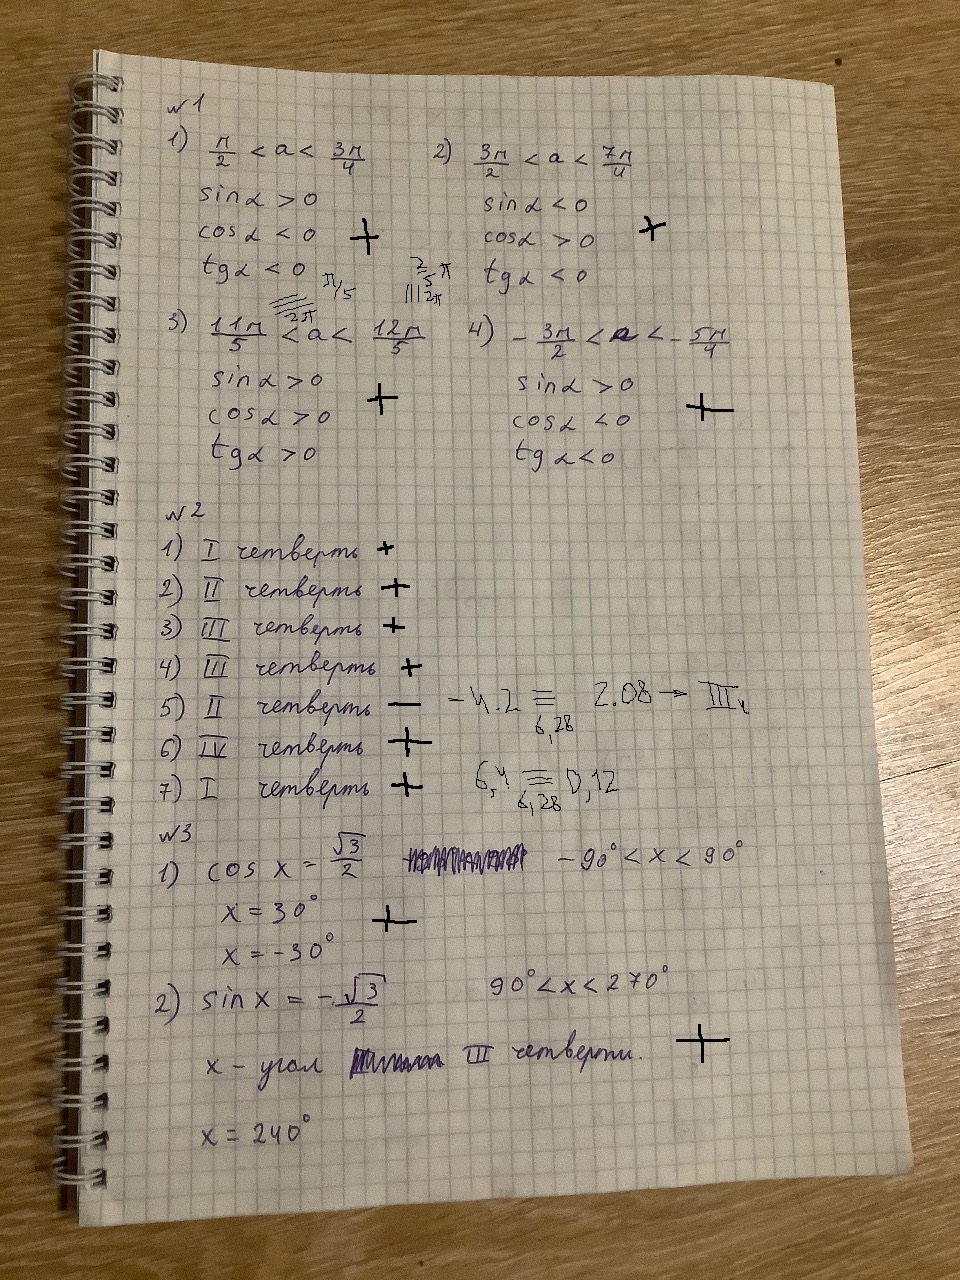 №1
1) π/2 < a < 3π/4
sin α > 0
cos α < 0 +
tg α < 0
2) 3π/2 < a < 7π/4
sin α < 0
cos α > 0 +
tg α < 0
π/5
2π
2/5 π
2π
3) 11π/5 < a < 12π/5
sin α > 0
cos α > 0 +
tg α > 0
4) - 3π/2 < a < - 5π/4
sin α > 0
cos α < 0 +
tg α < 0
№2
1) I четверть +
2) II четверть +
3) III четверть +
4) III четверть +
5) II четверть — -4.2 ≡ 2.08 → III ч
6,28
6) IV четверть +
7) I четверть + 6,4 ≡ 0,12
6,28
№3
1) cos x = √3/2 -90° < x < 90°
x = 30° +
x = -30°
2) sin x = -√3/2 90° < x < 270°
x - угол III четверти. +
x = 240°